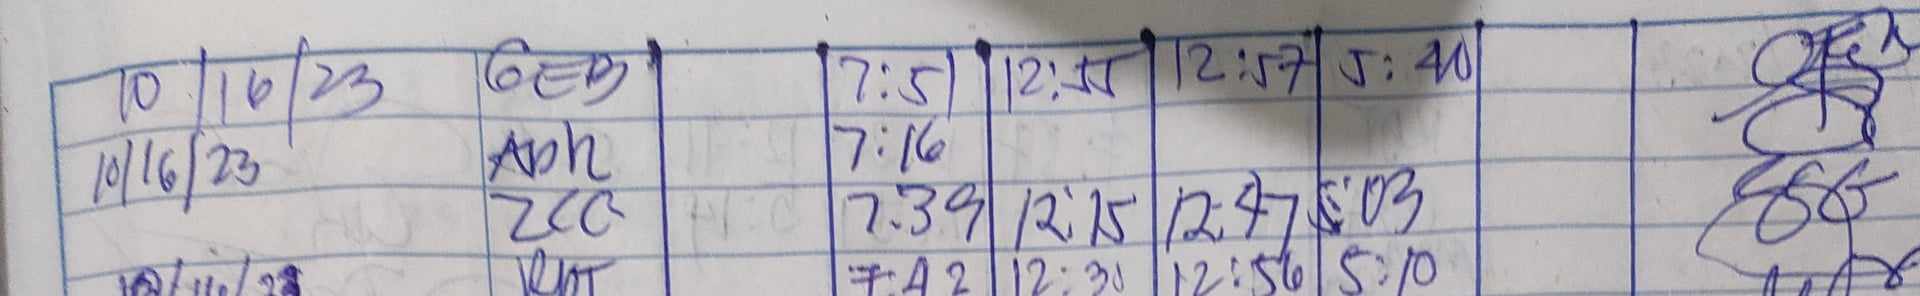 10/16/23 GEB 7:51 12:55 12:57 5:40
10/16/23 7:16
ZCC 7:39 12:15 12:47 5:03
7:42 12:30 12:56 5:10